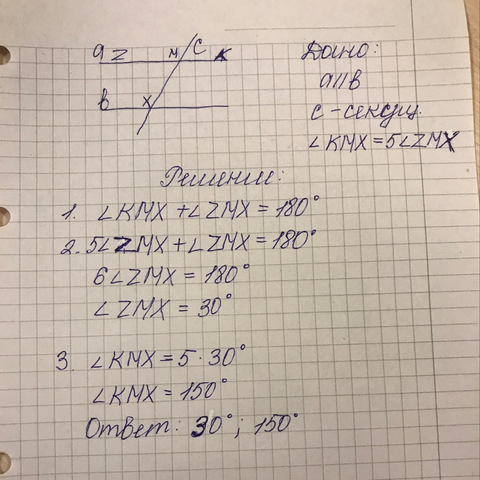 a Z M C K
b X
Дано:
a || b
c - секущ.
∠KMX = 5∠ZMX
Решение:
1. ∠KMX + ∠ZMX = 180°
2. 5∠ZMX + ∠ZMX = 180°
6∠ZMX = 180°
∠ZMX = 30°
3. ∠KMX = 5 · 30°
∠KMX = 150°
Ответ: 30°; 150°